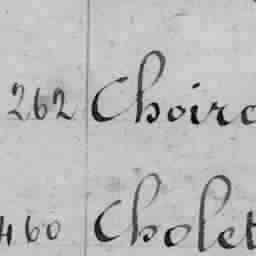 262 Choirc
460 Cholet